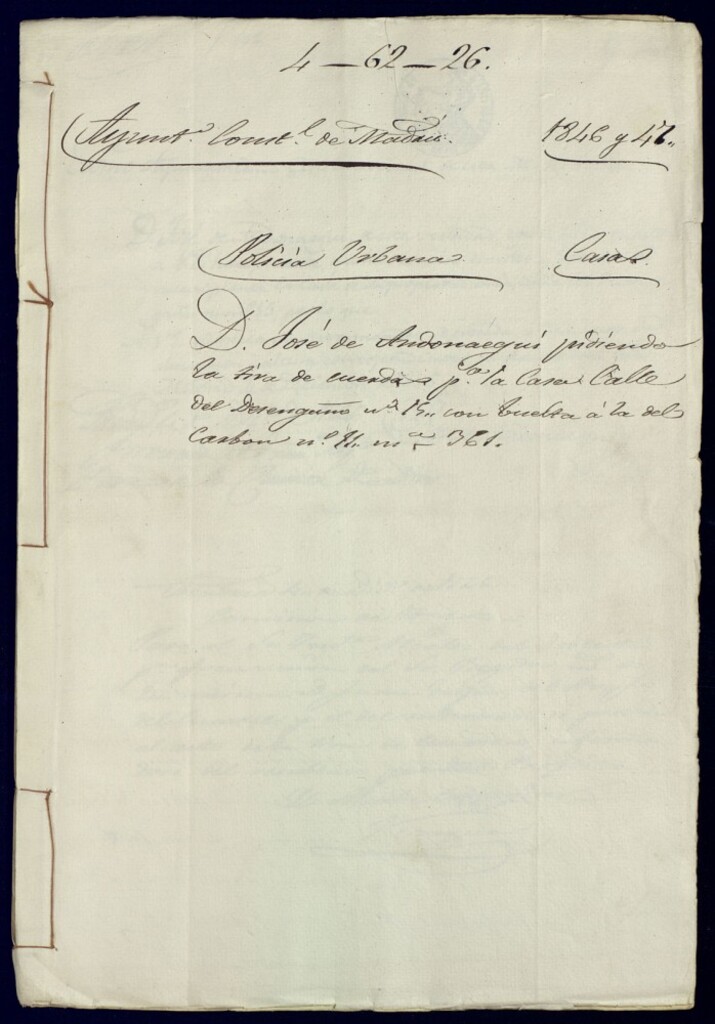 4 — 62 — 26.
Ayunt.º Const.l de Madrid. 1846 y 47„
Policia Urbana Casas.
D. José de Andonaegui pidiendo
la tira de cuerdas p.ª la Casa Calle
del Desengaño n.º 15„ con buelta á la del
Carbon n.º m.ª 361.